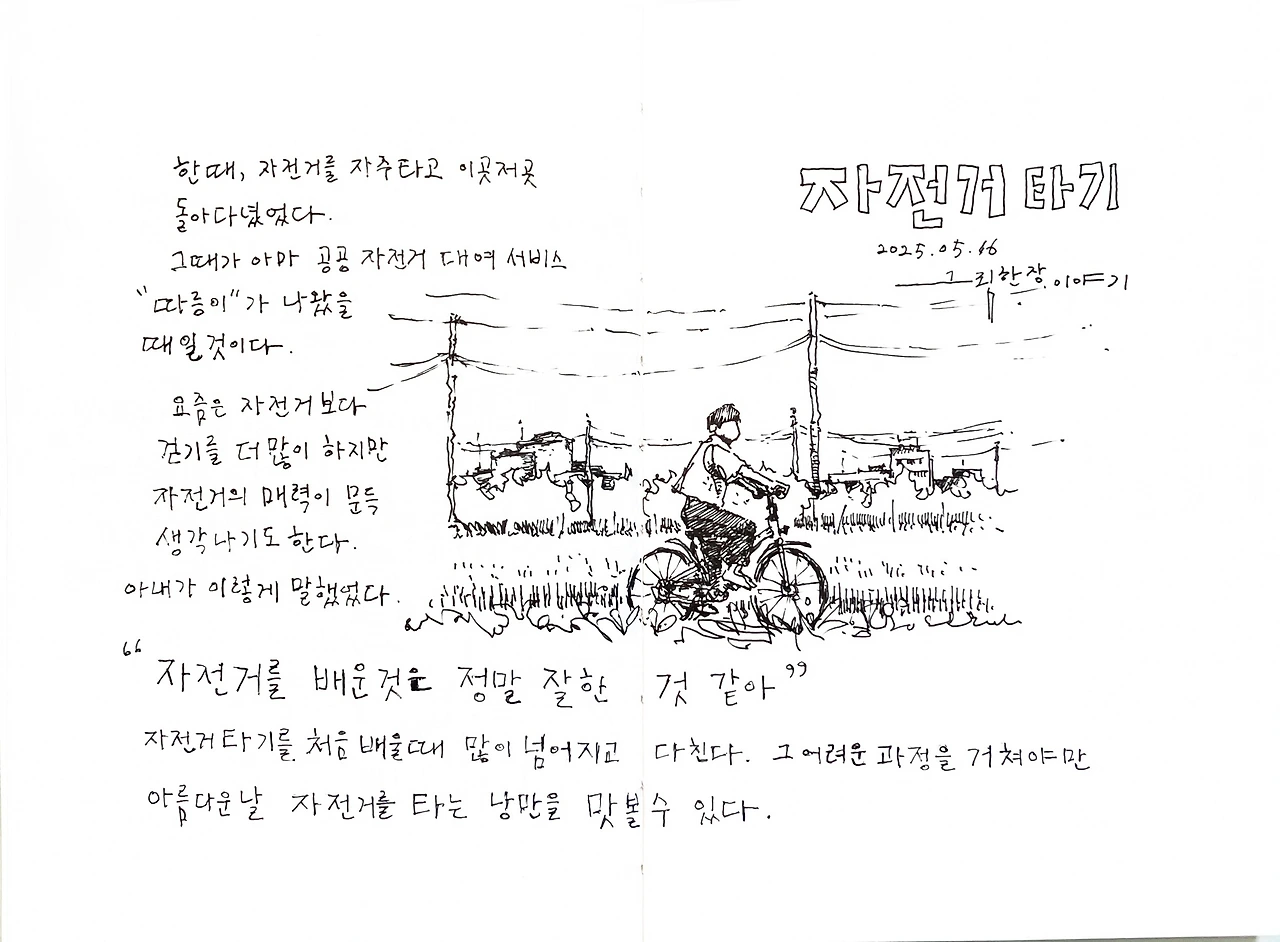 자전거 타기
2025.05.16
그리한장 이야기
한때, 자전거를 자주타고 이곳저곳
돌아다녔었다.
그때가 아마 공공 자전거 대여 서비스
"따릉이"가 나왔을
때일것이다.
요즘은 자전거보다
걷기를 더 많이 하지만
자전거의 매력이 문득
생각나기도 한다.
아내가 이렇게 말했었다.
"자전거를 배운것은 정말 잘한 것 같아"
자전거타기를 처음 배울때 많이 넘어지고 다친다. 그 어려운 과정을 거쳐야만
아름다운날 자전거를 타는 낭만을 맛볼 수 있다.